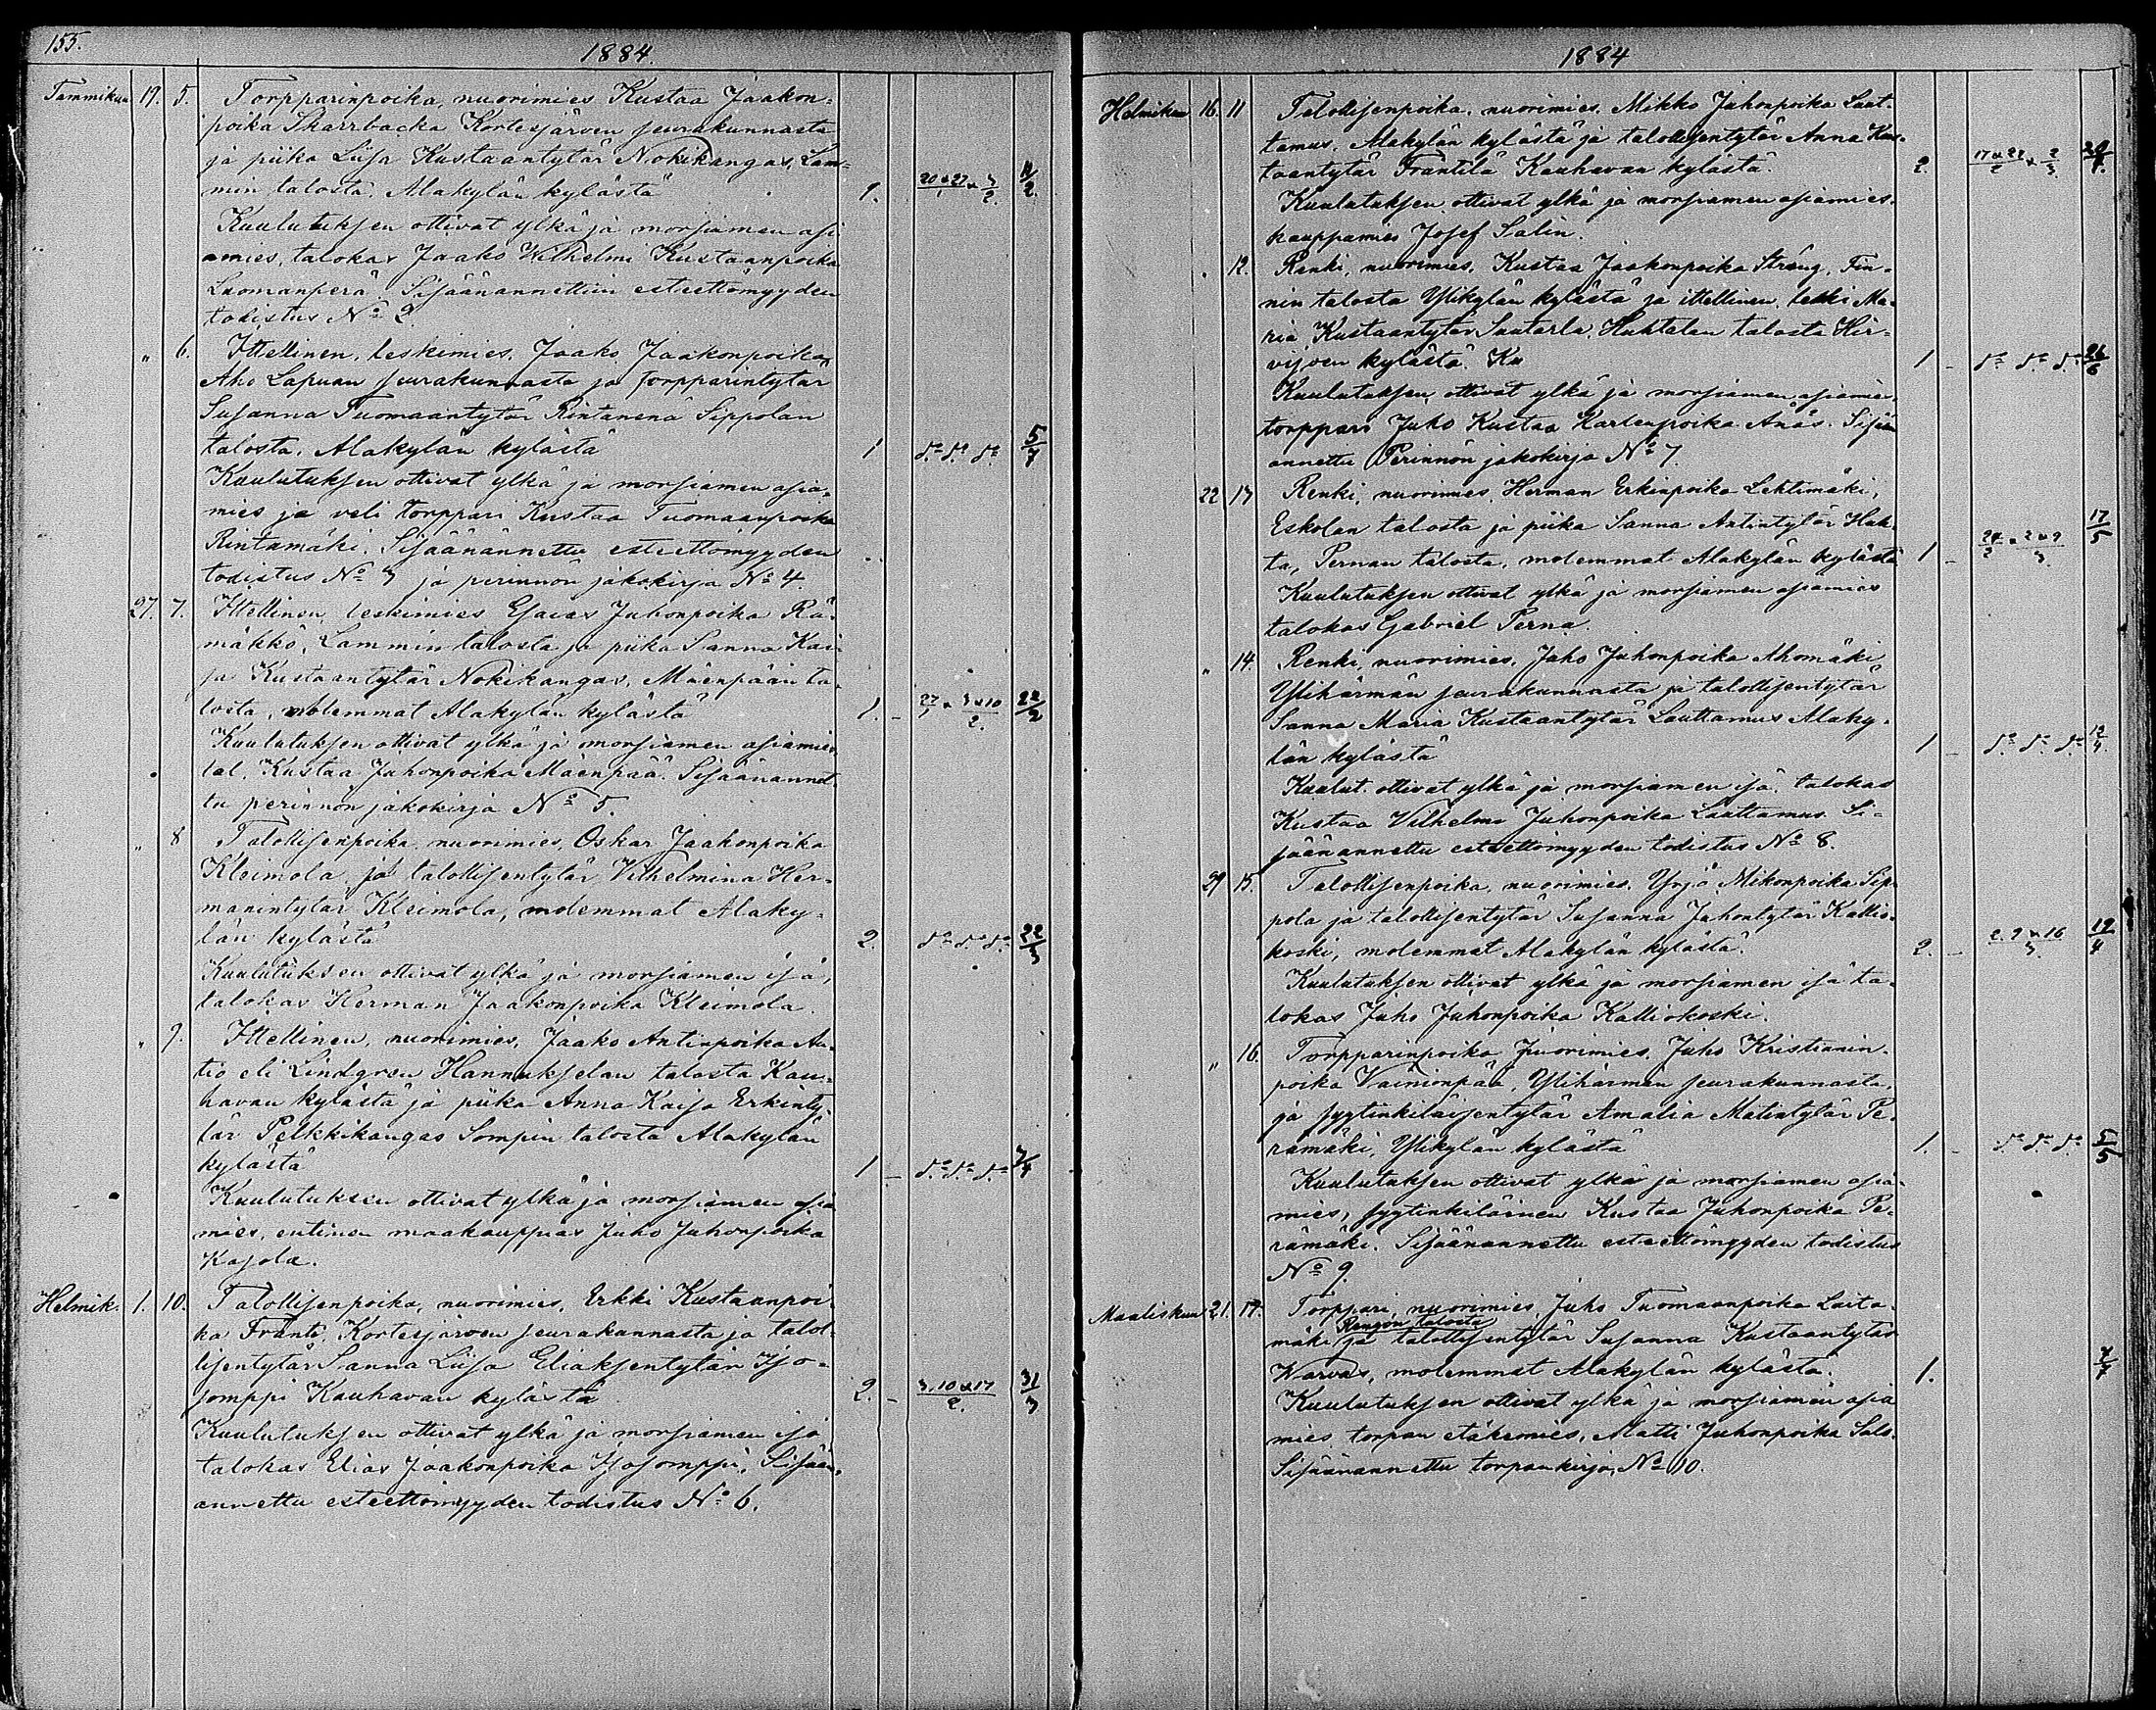 155.
1884.
Tammikuu 19. 5. Torpparinpoika, nuorimies Kustaa Jaakon-
poika Skarrbacka Kortesjärven seurakunnasta
ja piika Liisa Kustaantytär Nokikangas, Lam-
min talosta, Alakylän kylästä 1. 20 & 27/1 & 3/2. 11/2.
Kuulutuksen ottivat ylkä ja morsiamen asi
amies, talokas Jaako Wilhelmi Kustaanpoika
Luomanperä. Sisäänannettiin esteettömyyden
todistus No 2.
" 6. Ittellinen, leskimies, Jaako Jaakonpoika
Aho Lapuan seurakunnasta ja torpparintytär
Susanna Tuomaantytär Rintamäki Sippolan
talosta, Alakylän kylästä 1 do do do 5/7
Kuulutuksen ottivat ylkä ja morsiamen asia-
mies ja veli torppari Kustaa Tuomaanpoika
Rintamäki. Sisäänannettu esteettömyyden
todistus No 3 ja perinnön jakokirja No 4.
27. 7. Ittellinen, leskimies Esaias Juhonpoika Rä-
mäkkö, Lammin talosta ja piika Sanna Kai-
sa Kustaantytär Nokikangas, Mäenpään ta-
losta, molemmat Alakylän kylästä 1. 27/1 & 3 & 10/2. 22/2
Kuulutuksen ottivat ylkä ja morsiamen asiamies
tal. Kustaa Juhonpoika Mäenpää. Sisäänannet-
tu perinnön jakokirja No 5.
" 8 Talollisenpoika, nuorimies, Oskar Jaakonpoika
Kleimola, ja talollisentytär Vilhelmina Her-
manintytär Kleimola, molemmat Alaky-
län kylästä 2. do do do 22/3
Kuulutuksen ottivat ylkä ja morsiamen isä,
talokas Herman Jaakonpoika Kleimola.
" 9. Ittellinen, nuorimies, Jaako Antinpoika Au-
tio eli Lindgren Hannukselan talosta Kau-
havan kylästä ja piika Anna Kaisa Erkinty-
tär Pelkkikangas Sompin talosta Alakylän
kylästä 1 do do do 7/4
Kuulutuksen ottivat ylkä ja morsiamen asia
mies, entinen maakauppias Juho Juhonpoika
Kajola.
Helmik. 1. 10. Talollisenpoika, nuorimies, Erkki Kustaanpoi-
ka Fränti, Kortesjärven seurakunnasta ja talol-
lisentytär Sanna Liisa Eliaksentytär Iso-
somppi Kauhavan kylästä 2. 3. 10 & 17/2. 31/3
Kuulutuksen ottivat ylkä ja morsiamen isä
talokas Elias Jaakonpoika Isosomppi. Sisään-
annettu esteettömyyden todistus No 6.
1884
Helmikuu 16. 11 Talollisenpoika, nuorimies, Mikko Juhonpoika Laut-
tamus, Alakylän kylästä ja talollisentytär Anna Kus-
taantytär Frantilä Kauhavan kylästä. 2. 17 & 22/2 & 2/3.
Kuulutuksen ottivat ylkä ja morsiamen asiamies,
kauppamies Josef Salin.
" 12. Renki, nuorimies, Kustaa Jaakonpoika Sträng, Fin-
nin talosta Ylikylän kylästä ja ittellinen, leski Ma-
ria Kustaantytär Sautarla, Huhtalan talosta Hir-
vijoen kylästä. Ku 1 do do do 26/6
Kuulutuksen ottivat ylkä ja morsiamen asiamies
torppari Juho Kustaa Karlenpoika Ånäs. Sisään
annettu Perinnön jakokirja No 7.
22 13 Renki, nuorimies Herman Erkinpoika Lehtimäki,
Eskolan talosta ja piika Sanna Antintytär Huh-
ta, Pernan talosta, molemmat Alakylän kylästä 1 24/2 & 2 & 9/3. 17/5
Kuulutuksen ottivat ylkä ja morsiamen asiamies
talokas Gabriel Perna.
" 14. Renki, nuorimies, Jaho Juhonpoika Ahomäki
Ylihärmän seurakunnasta ja talollisentytär
Sanna Maria Kustaantytär Lauttamus Alaky-
län kylästä 1 do do do 12/4.
Kuulut. ottivat ylkä ja morsiamen isä, talokas
Kustaa Vilhelmi Juhonpoika Lauttamus. Si-
säänannettu esteettömyyden todistus No 8.
29 15. Talollisenpoika, nuorimies, Yrjö Mikonpoika Sip-
pola ja talollisentytär Susanna Juhontytär Kallio-
koski, molemmat Alakylän kylästä. 2. 2. 9 & 16/3. 19/4
Kuulutuksen ottivat ylkä ja morsiamen isä ta-
lokas Juho Juhonpoika Kalliokoski.
" 16. Torpparinpoika nuorimies, Juho Kristianin-
poika Vainionpää, Ylihärmän seurakunnasta,
ja syytinkiläisentytär Amalia Matintytär Pe-
rämäki, Ylikylän kylästä 1. do do do 5/5
Kuulutuksen ottivat ylkä ja morsiamen asia-
mies, syytinkiläinen Kustaa Juhonpoika Pe-
rämäki. Sisäänannettu esteettömyyden todistus
No 9.
Maaliskuu 21. 17. Torppari, nuorimies, Juho Tuomaanpoika Laita-
Rengon talosta
mäki ja talollisentytär Susanna Kustaantytär
Warvas, molemmat Alakylän kylästä. 1.
Kuulutuksen ottivat ylkä ja morsiamen asia
mies torpan etäkomies, Matti Juhonpoika Salo.
Sisäänannettu torpankirja, No 10.